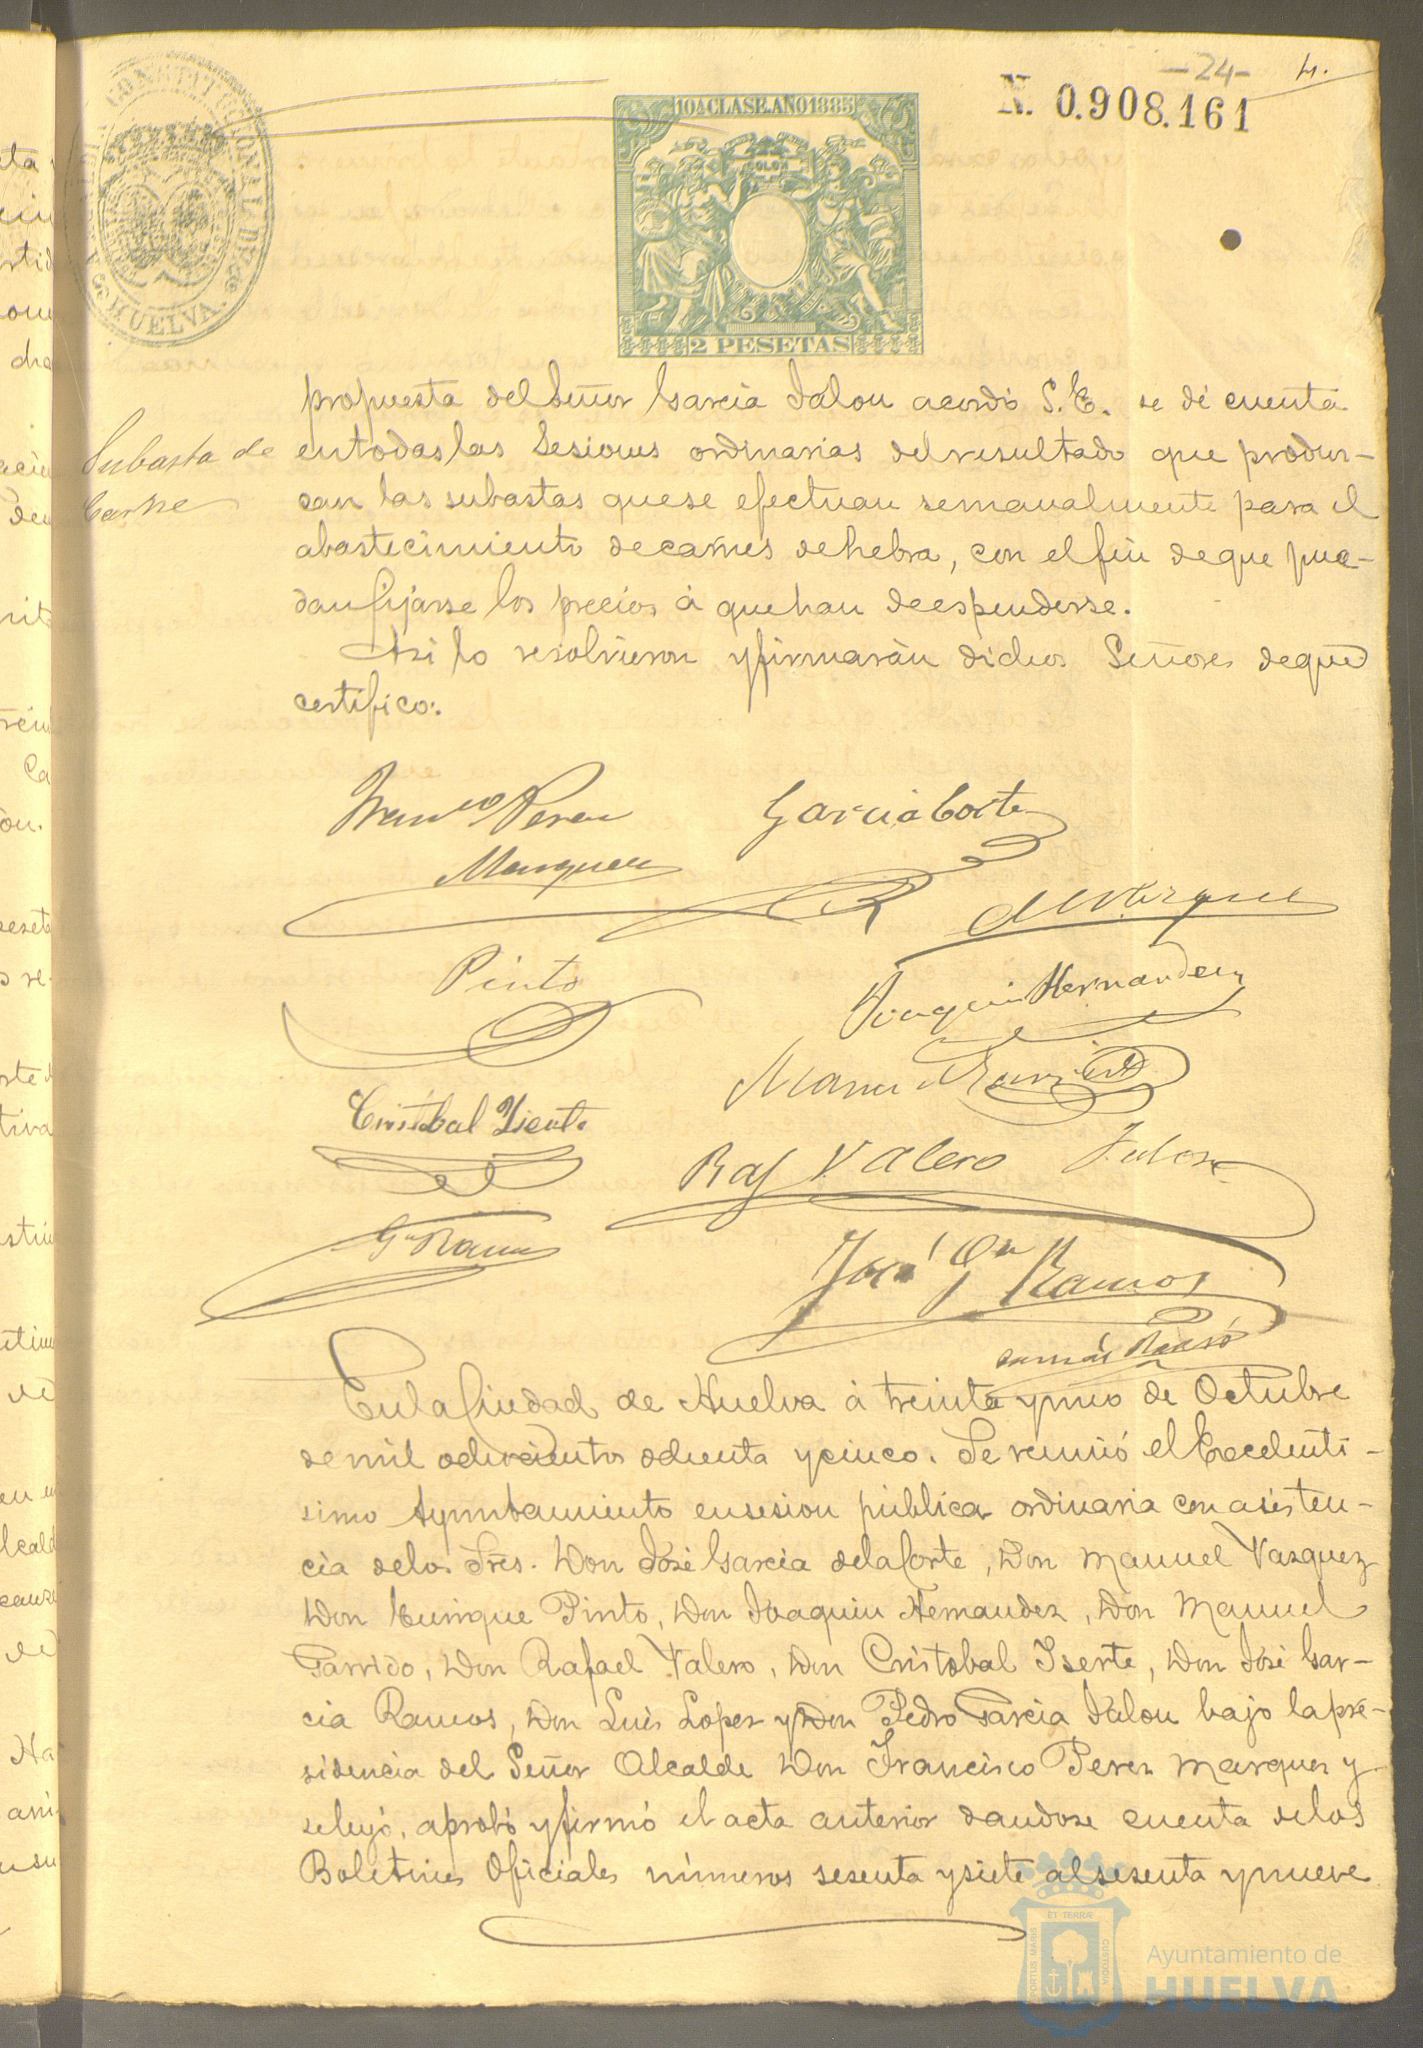 -24- 4.
N. 0.908.161
10ª CLASE. AÑO 1885
2 PESETAS
CONSTITUCIONAL DE
HUELVA.
Subasta de
Carne
propuesta del Señor Garcia Jalon acordó S. E. se dé cuenta
en todas las Sesiones ordinarias del resultado que produz-
can las subastas que se efectuan semanalmente para el
abastecimiento de carnes de hebra, con el fin de que pue-
dan fijarse los precios á que han de espenderse.
Asi lo resolvieron y firmarán dichos Señores de que
certifico.
Franco Perez Garcia Corte
Marquez
M Vazquez
Pinto
Joaquin Hernandez
Manuel Garrido
Cristobal Yserte
Raf Valero Jalon
Ga Ramos
José Ga Ramos
En la Ciudad de Huelva á treinta y uno de Octubre
de mil ochocientos ochenta y cinco. Se reunió el Excelenti-
simo Ayuntamiento en sesion pública ordinaria con asisten-
cia de los Sres. Don José Garcia de la Corte, Don Manuel Vazquez
Don Enrique Pinto, Don Joaquin Hernandez, Don Manuel
Garrido, Don Rafael Valero, Don Cristobal Yserte, Don José Gar-
cia Ramos, Don Luis Lopez y Don Pedro Garcia Jalon bajo la pre-
sidencia del Señor Alcalde Don Francisco Perez Marquez y
se leyó, aprobó y firmó el acta anterior dandose cuenta de los
Boletines Oficiales números sesenta y siete al sesenta y nueve
PORTUS MARIS ET TERRÆ CUSTODIA
Ayuntamiento de
HUELVA